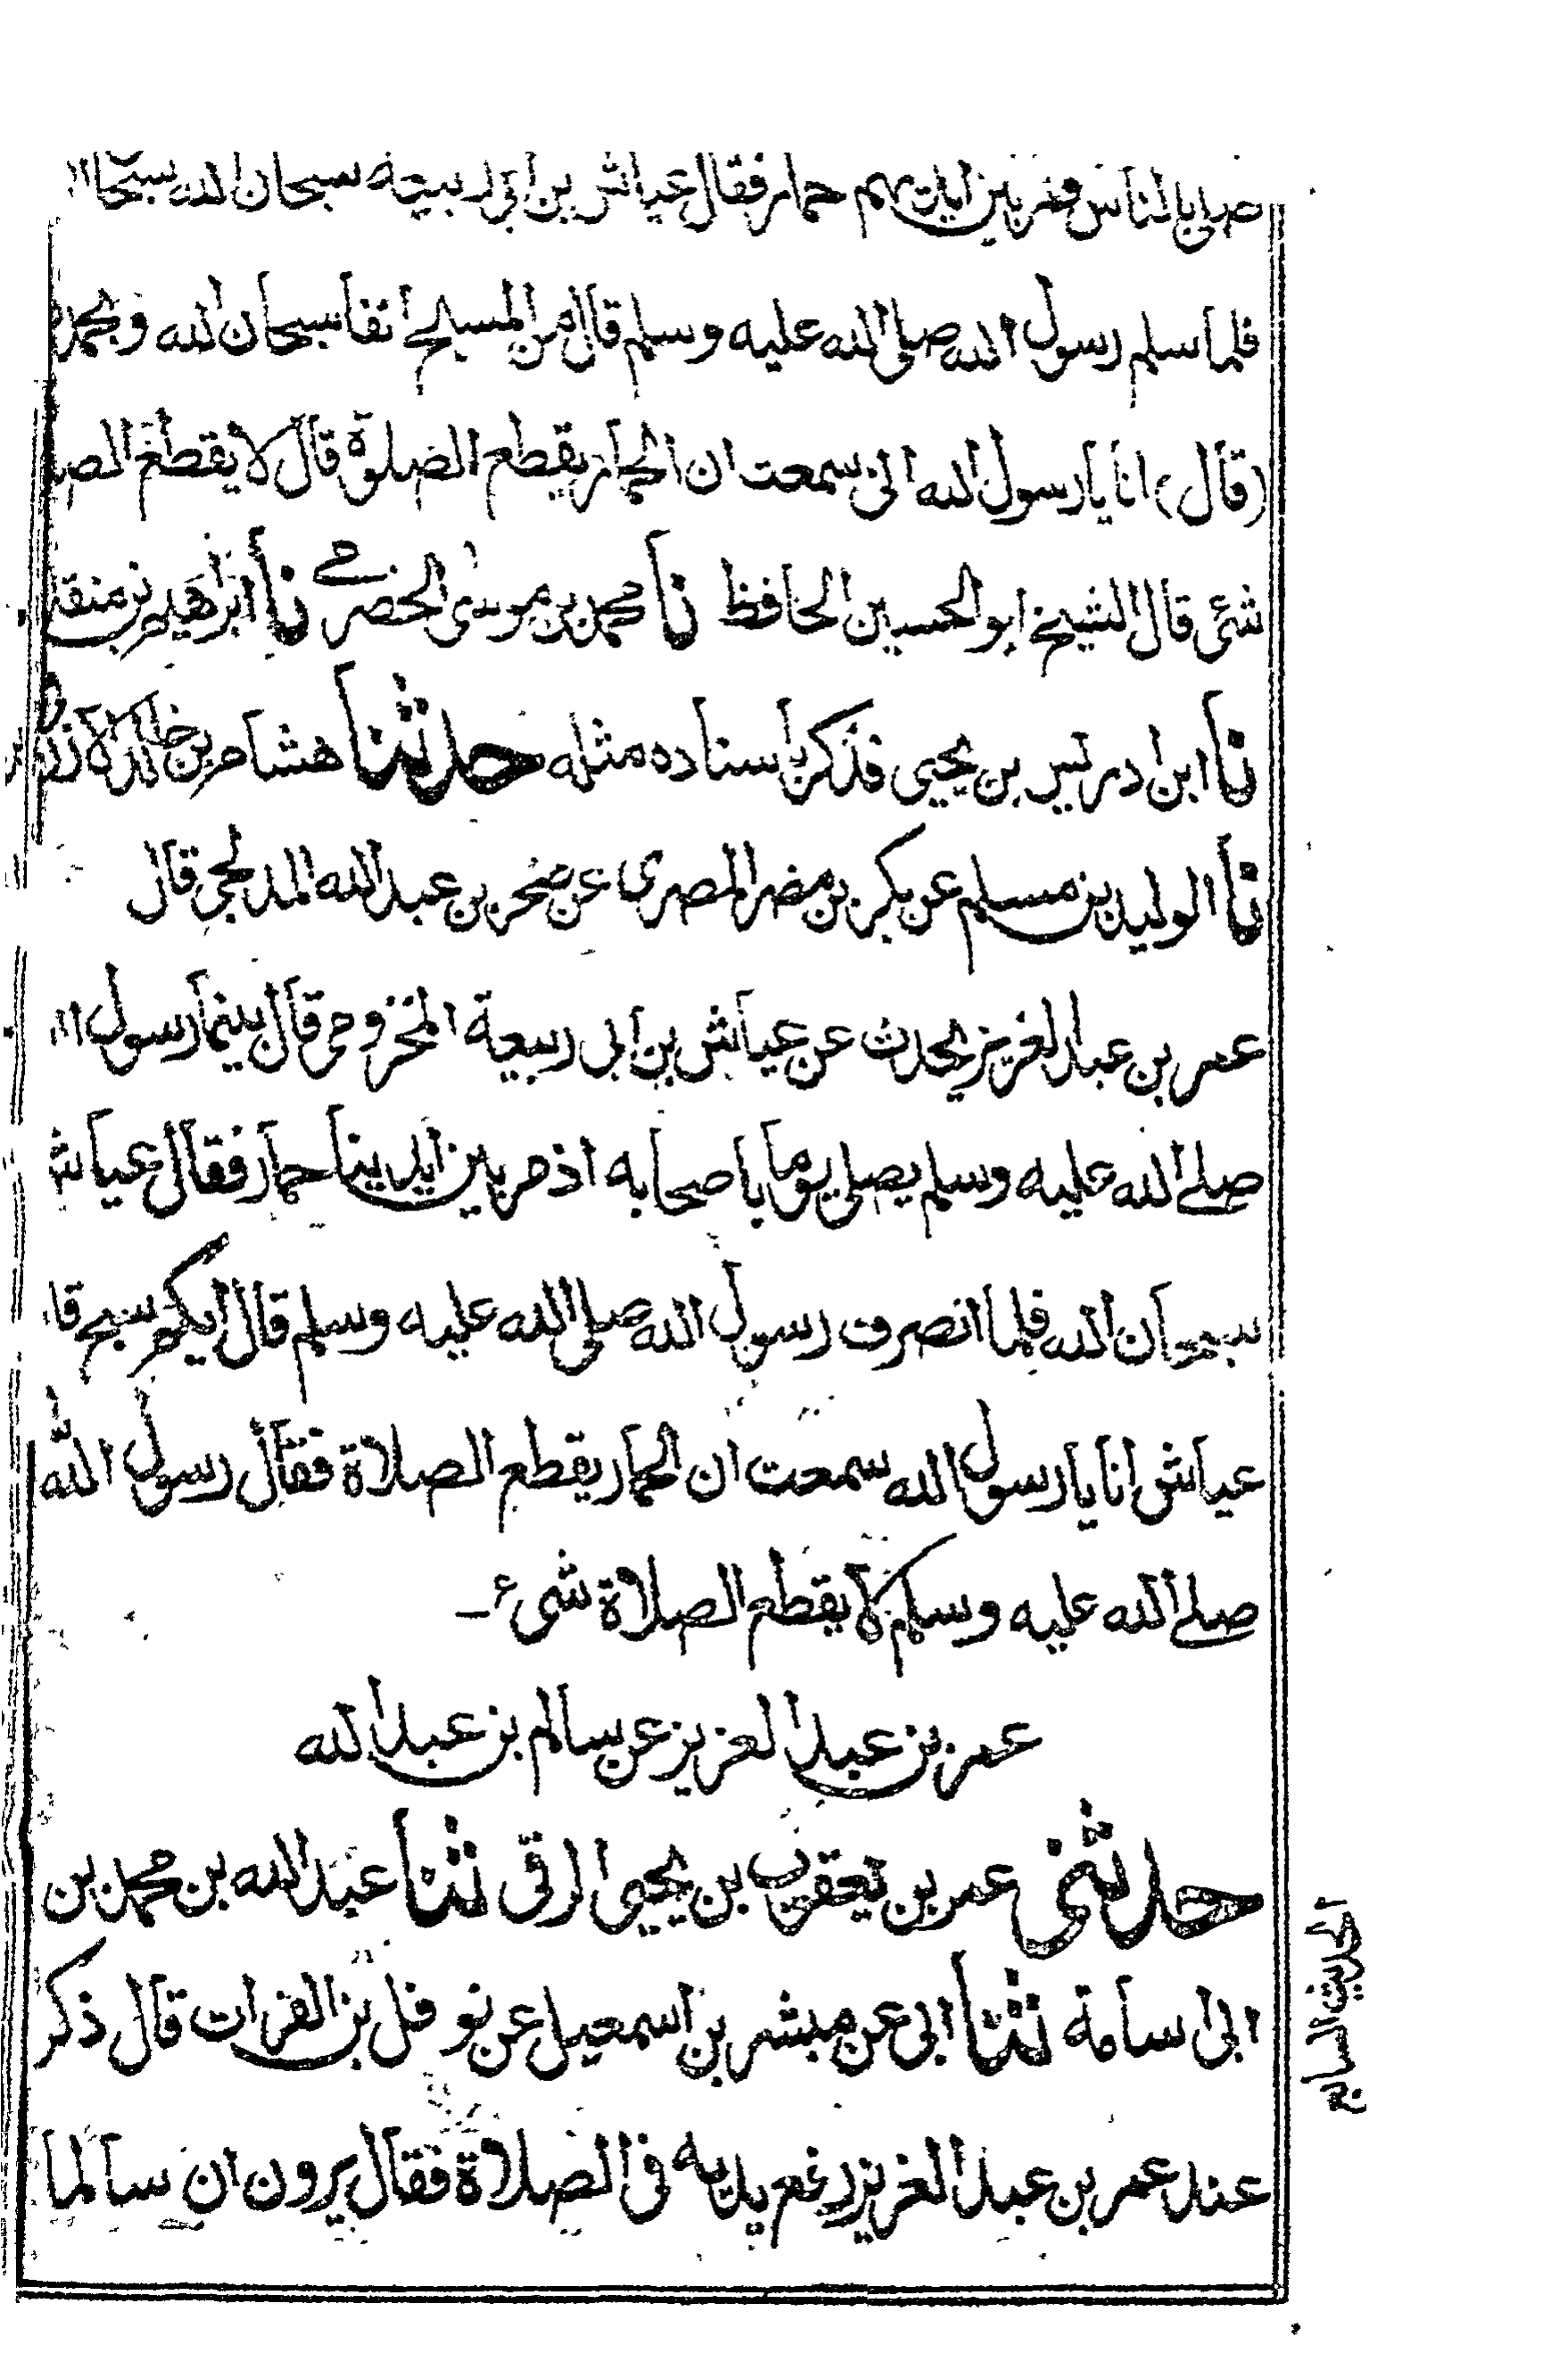 صلى بالناس فمر بين ايديهم حمار فقال عياش بن ابى ربيعة سبحان الله سبحا
فلما سلم رسول الله صلى الله عليه وسلم قال من المسبح انفا سبحان الله وبحمده
(قال) انا يا رسول الله انى سمعت ان الحمار يقطع الصلوة قال لا يقطع الصلـ
شئ قال الشيخ ابو الحسين الحافظ نا محمد بن موسى الحضرمى نا ابراهيم بن منقذ
نا ابن ادريس بن يحيى فذكر باسناده مثله حدثنا هشام بن خالد الازرق
نا الوليد بن مسلم عن بكر بن مضر المصرى عن صخر بن عبد الله المدلجى قال
عمر بن عبد العزيز يحدث عن عياش بن ابى ربيعة المخزومى قال بينما رسول الله
صلى الله عليه وسلم يصلى يوما باصحابه اذ مر بين ايدينا حمار فقال عياش
سبحان الله فلما انصرف رسول الله صلى الله عليه وسلم قال ايكم سبح قا
عياش انا يا رسول الله سمعت ان الحمار يقطع الصلاة فقال رسول الله
صلى الله عليه وسلم لا يقطع الصلاة شىء ـ
عمر بن عبد العزيز عن سالم بن عبد الله
حدثنى عمر بن يعقوب بن يحيى الرقى ثنا عبد الله بن محمد بن
ابى اسامة ثنا ابى عن مبشر بن اسمعيل عن نوفل بن الفرات قال ذكر
عند عمر بن عبد العزيز رفع يديه فى الصلاة فقال يرون ان سالما
الحديث السابع